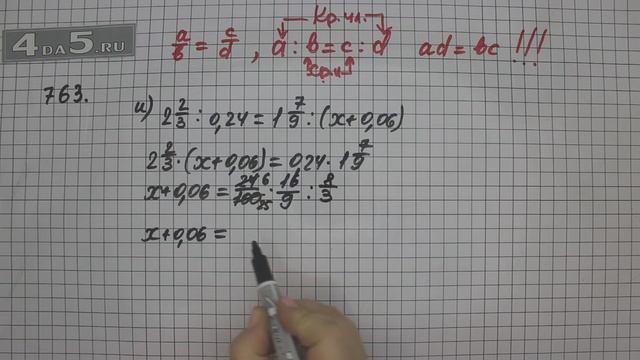 4DA5.RU
Кр.чл.
a/b = c/d , a : b = c : d   ad = bc !!!
ср.ч.
763. и) 2 2/3 : 0,24 = 1 7/9 : (x+0,06)
2 2/3 · (x+0,06) = 0,24 · 1 7/9
x+0,06 = 24 6/100 25 · 16/9 : 8/3
x+0,06 =